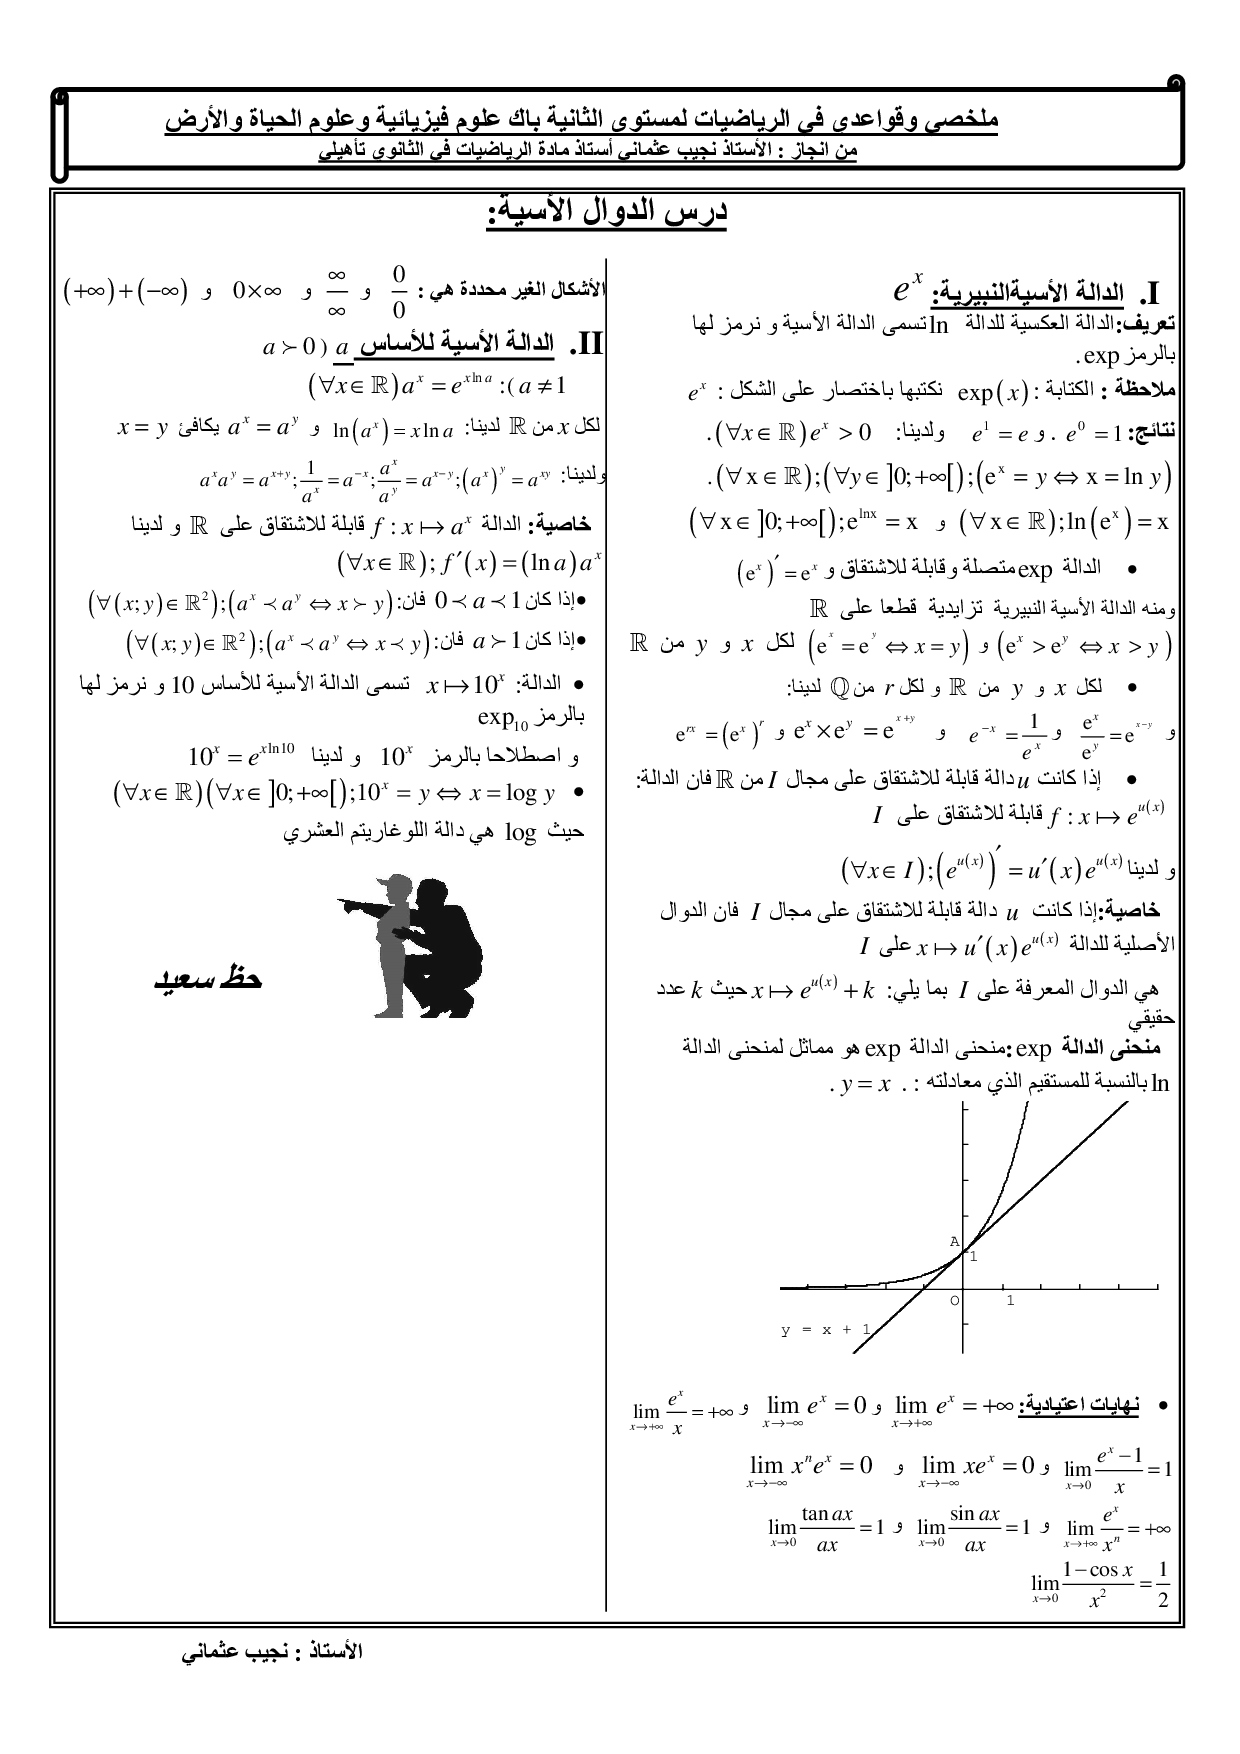 ملخصي وقواعدي في الرياضيات لمستوى الثانية باك علوم فيزيائية وعلوم الحياة والأرض
من انجاز : الأستاذ نجيب عثماني أستاذ مادة الرياضيات في الثانوي تأهيلي
درس الدوال الأسية:
I. الدالة الأسيةالنبيرية: e^x
تعريف:الدالة العكسية للدالة ln تسمى الدالة الأسية و نرمز لها
بالرمز exp .
ملاحظة : الكتابة : exp(x) نكتبها باختصار على الشكل : e^x
نتائج: e^0 = 1 و . e^1 = e ولدينا: (∀x∈ℝ) e^x > 0 .
(∀x∈ℝ);(∀y∈]0;+∞[);(e^x = y ⇔ x = ln y) .
(∀x∈ℝ);ln(e^x) = x و (∀x∈]0;+∞[);e^{lnx} = x
• الدالة exp متصلة وقابلة للاشتقاق و (e^x)′ = e^x
ومنه الدالة الأسية النبيرية تزايدية قطعا على ℝ
(e^x > e^y ⇔ x > y) و (e^x = e^y ⇔ x = y) لكل x و y من ℝ
• لكل x و y من ℝ و لكل r من ℚ لدينا:
و e^x/e^y = e^{x−y} و e^{−x} = 1/e^x و e^x × e^y = e^{x+y} و e^{rx} = (e^x)^r
• إذا كانت u دالة قابلة للاشتقاق على مجال I من ℝ فان الدالة:
f : x ↦ e^{u(x)} قابلة للاشتقاق على I
و لدينا (∀x∈I);(e^{u(x)})′ = u′(x)e^{u(x)}
خاصية:إذا كانت u دالة قابلة للاشتقاق على مجال I فان الدوال
الأصلية للدالة x ↦ u′(x)e^{u(x)} على I
هي الدوال المعرفة على I بما يلي: x ↦ e^{u(x)} + k حيث k عدد
حقيقي
منحنى الدالة exp :منحنى الدالة exp هو مماثل لمنحنى الدالة
ln بالنسبة للمستقيم الذي معادلته : . y = x .
A
1
O 1
y = x + 1
• نهايات اعتيادية: lim_{x→+∞} e^x = +∞ و lim_{x→−∞} e^x = 0 و lim_{x→+∞} e^x/x = +∞
lim_{x→0} (e^x − 1)/x = 1 و lim_{x→−∞} xe^x = 0 و lim_{x→−∞} x^n e^x = 0
lim_{x→+∞} e^x/x^n = +∞ و lim_{x→0} sin ax/ax = 1 و lim_{x→0} tan ax/ax = 1
lim_{x→0} (1 − cos x)/x^2 = 1/2
الأشكال الغير محددة هي : 0/0 و ∞/∞ و 0×∞ و (+∞)+(−∞)
II. الدالة الأسية للأساس a ( a ≻ 0
a ≠ 1 ): (∀x∈ℝ) a^x = e^{x ln a}
لكل x من ℝ لدينا: ln(a^x) = x ln a و a^x = a^y يكافئ x = y
ولدينا: a^x a^y = a^{x+y}; 1/a^x = a^{−x}; a^x/a^y = a^{x−y}; (a^x)^y = a^{xy}
خاصية: الدالة f : x ↦ a^x قابلة للاشتقاق على ℝ و لدينا
(∀x∈ℝ); f′(x) = (ln a)a^x
•إذا كان 0 ≺ a ≺ 1 فان: (∀(x;y)∈ℝ^2);(a^x ≺ a^y ⇔ x ≻ y)
•إذا كان a ≻ 1 فان: (∀(x;y)∈ℝ^2);(a^x ≺ a^y ⇔ x ≺ y)
• الدالة: x ↦ 10^x تسمى الدالة الأسية للأساس 10 و نرمز لها
بالرمز exp_10
و اصطلاحا بالرمز 10^x و لدينا 10^x = e^{x ln 10}
• (∀x∈ℝ)(∀x∈]0;+∞[);10^x = y ⇔ x = log y
حيث log هي دالة اللوغاريتم العشري
حظ سعيد
الأستاذ : نجيب عثماني